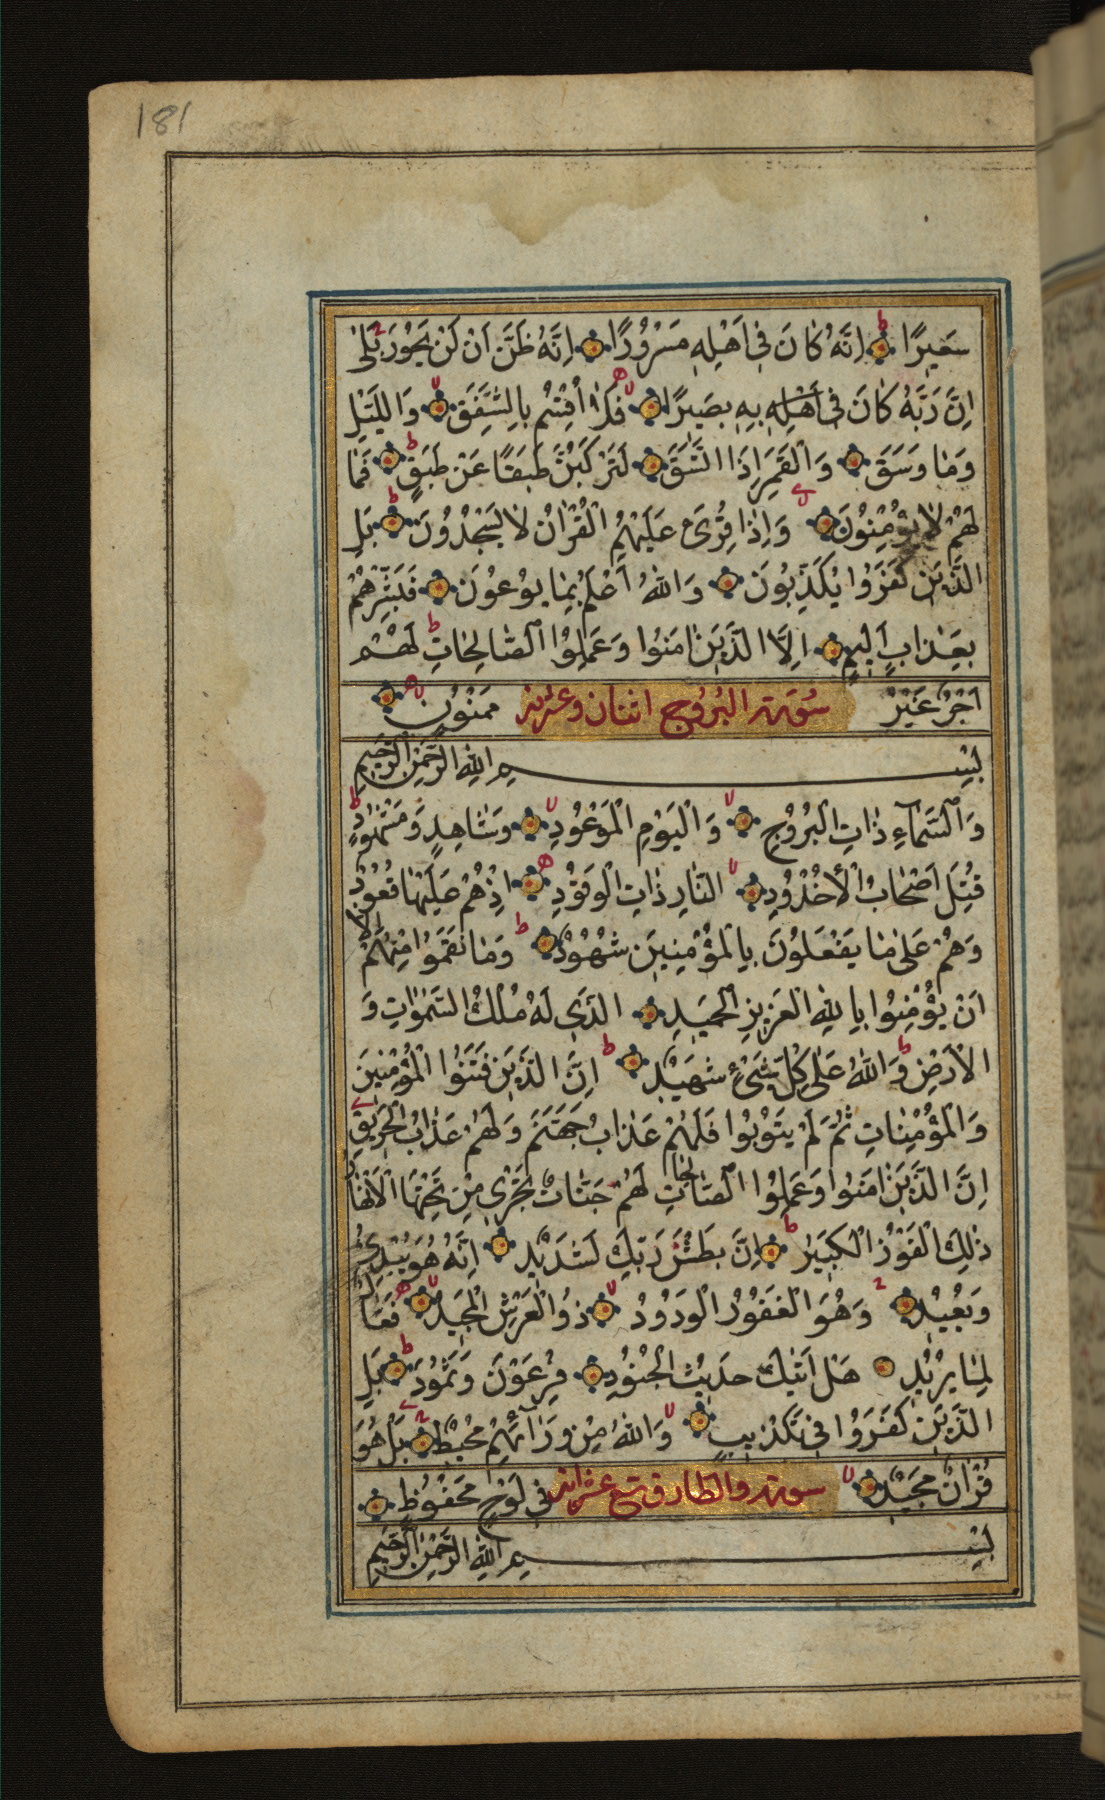 181
سَعِيرًا اِنَّهُ كَانَ فِى اَهْلِهِ مَسْرُورًا اِنَّهُ ظَنَّ اَنْ لَنْ يَحُورَ بَلٰى
اِنَّ رَبَّهُ كَانَ فِى اَهْلِهِ بِهِ بَصِيرًا فَلَا اُقْسِمُ بِالشَّفَقِ وَالَّيْلِ
وَمَا وَسَقَ وَالْقَمَرِ اِذَا اتَّسَقَ لَتَرْكَبُنَّ طَبَقًا عَنْ طَبَقٍ فَمَا
لَهُمْ لَا يُؤْمِنُونَ وَاِذَا قُرِىَٔ عَلَيْهِمُ الْقُرْاٰنُ لَا يَسْجُدُونَ بَلِ
الَّذِينَ كَفَرُوا يُكَذِّبُونَ وَاللّٰهُ اَعْلَمُ بِمَا يُوعُونَ فَبَشِّرْهُمْ
بِعَذَابٍ اَلِيمٍ اِلَّا الَّذِينَ اٰمَنُوا وَعَمِلُوا الصَّالِحَاتِ لَهُمْ
اَجْرٌ غَيْرُ سورة البروج اثنان وعشرون مَمْنُونٍ
بِسْمِ اللّٰهِ الرَّحْمٰنِ الرَّحِيمِ
وَالسَّمَاءِ ذَاتِ الْبُرُوجِ وَالْيَوْمِ الْمَوْعُودِ وَشَاهِدٍ وَمَشْهُودٍ
قُتِلَ اَصْحَابُ الْاُخْدُودِ النَّارِ ذَاتِ الْوَقُودِ اِذْ هُمْ عَلَيْهَا قُعُودٌ
وَهُمْ عَلٰى مَا يَفْعَلُونَ بِالْمُؤْمِنِينَ شُهُودٌ وَمَا نَقَمُوا مِنْهُمْ اِلَّا
اَنْ يُؤْمِنُوا بِاللّٰهِ الْعَزِيزِ الْحَمِيدِ الَّذِى لَهُ مُلْكُ السَّمٰوَاتِ وَ
الْاَرْضِ وَاللّٰهُ عَلٰى كُلِّ شَىْءٍ شَهِيدٌ اِنَّ الَّذِينَ فَتَنُوا الْمُؤْمِنِينَ
وَالْمُؤْمِنَاتِ ثُمَّ لَمْ يَتُوبُوا فَلَهُمْ عَذَابُ جَهَنَّمَ وَلَهُمْ عَذَابُ الْحَرِيقِ
اِنَّ الَّذِينَ اٰمَنُوا وَعَمِلُوا الصَّالِحَاتِ لَهُمْ جَنَّاتٌ تَجْرِى مِنْ تَحْتِهَا الْاَنْهَارُ
ذٰلِكَ الْفَوْزُ الْكَبِيرُ اِنَّ بَطْشَ رَبِّكَ لَشَدِيدٌ اِنَّهُ هُوَ يُبْدِئُ
وَيُعِيدُ وَهُوَ الْغَفُورُ الْوَدُودُ ذُو الْعَرْشِ الْمَجِيدُ فَعَّالٌ
لِمَا يُرِيدُ هَلْ اَتٰيكَ حَدِيثُ الْجُنُودِ فِرْعَوْنَ وَثَمُودَ بَلِ
الَّذِينَ كَفَرُوا فِى تَكْذِيبٍ وَاللّٰهُ مِنْ وَرَائِهِمْ مُحِيطٌ بَلْ هُوَ
قُرْاٰنٌ مَجِيدٌ سورة والطارق سبع عشر اية فِى لَوْحٍ مَحْفُوظٍ
بِسْمِ اللّٰهِ الرَّحْمٰنِ الرَّحِيمِ